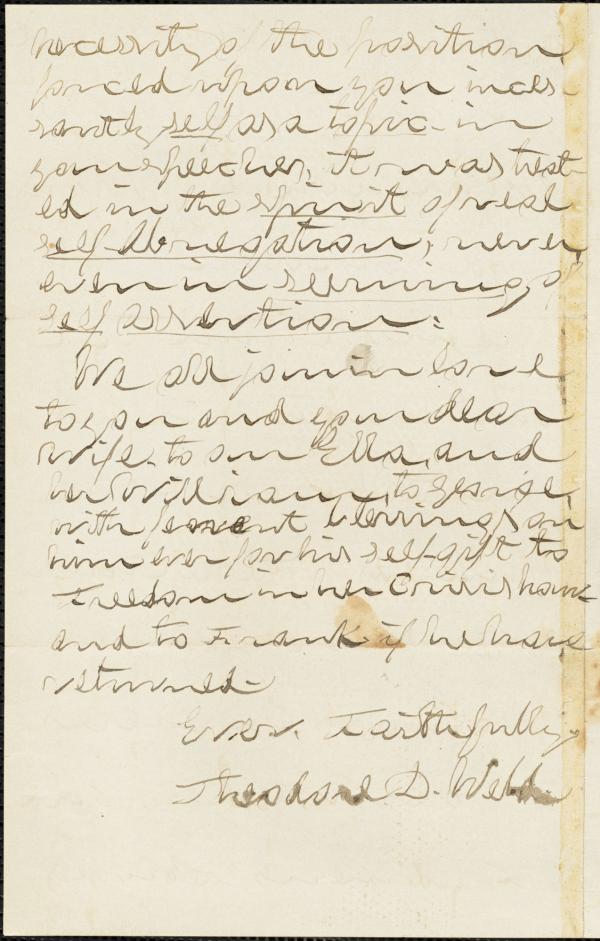 necessity of the position
forced upon you inces-
santly self as a topic - in
your speeches, it was treat-
ed in the spirit of real
self-Abnegation; never
even in seeming, of
self assertion:
We all join in love
to you and your dear
wife - to our Ella, and
her William, to George,
with fervent blessings on
him ever for his self-gift to
Freedom in her Crisis hour -
and to Frank if he have
returned -
Ever Faithfully,
Theodore D. Weld.